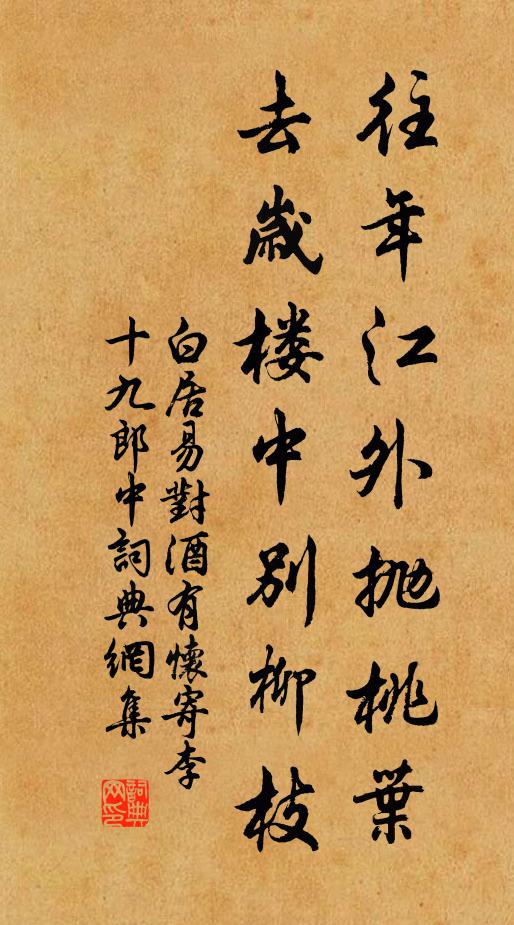 往年江外抛桃葉
去歲楼中别柳枝
白居易對酒有懷寄李
十九郎中詞典網集
詞典
网印